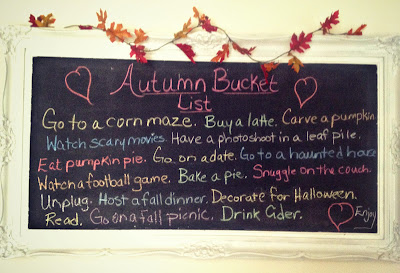 Autumn Bucket
List
Go to a corn maze. Buy a latte. Carve a pumpkin.
Watch scary movies. Have a photoshoot in a leaf pile.
Eat pumpkin pie. Go on a date. Go to a haunted house
Watch a football game. Bake a pie. Snuggle on the couch.
Unplug. Host a fall dinner. Decorate for Halloween.
Read. Go on a fall picnic. Drink Cider. Enjoy